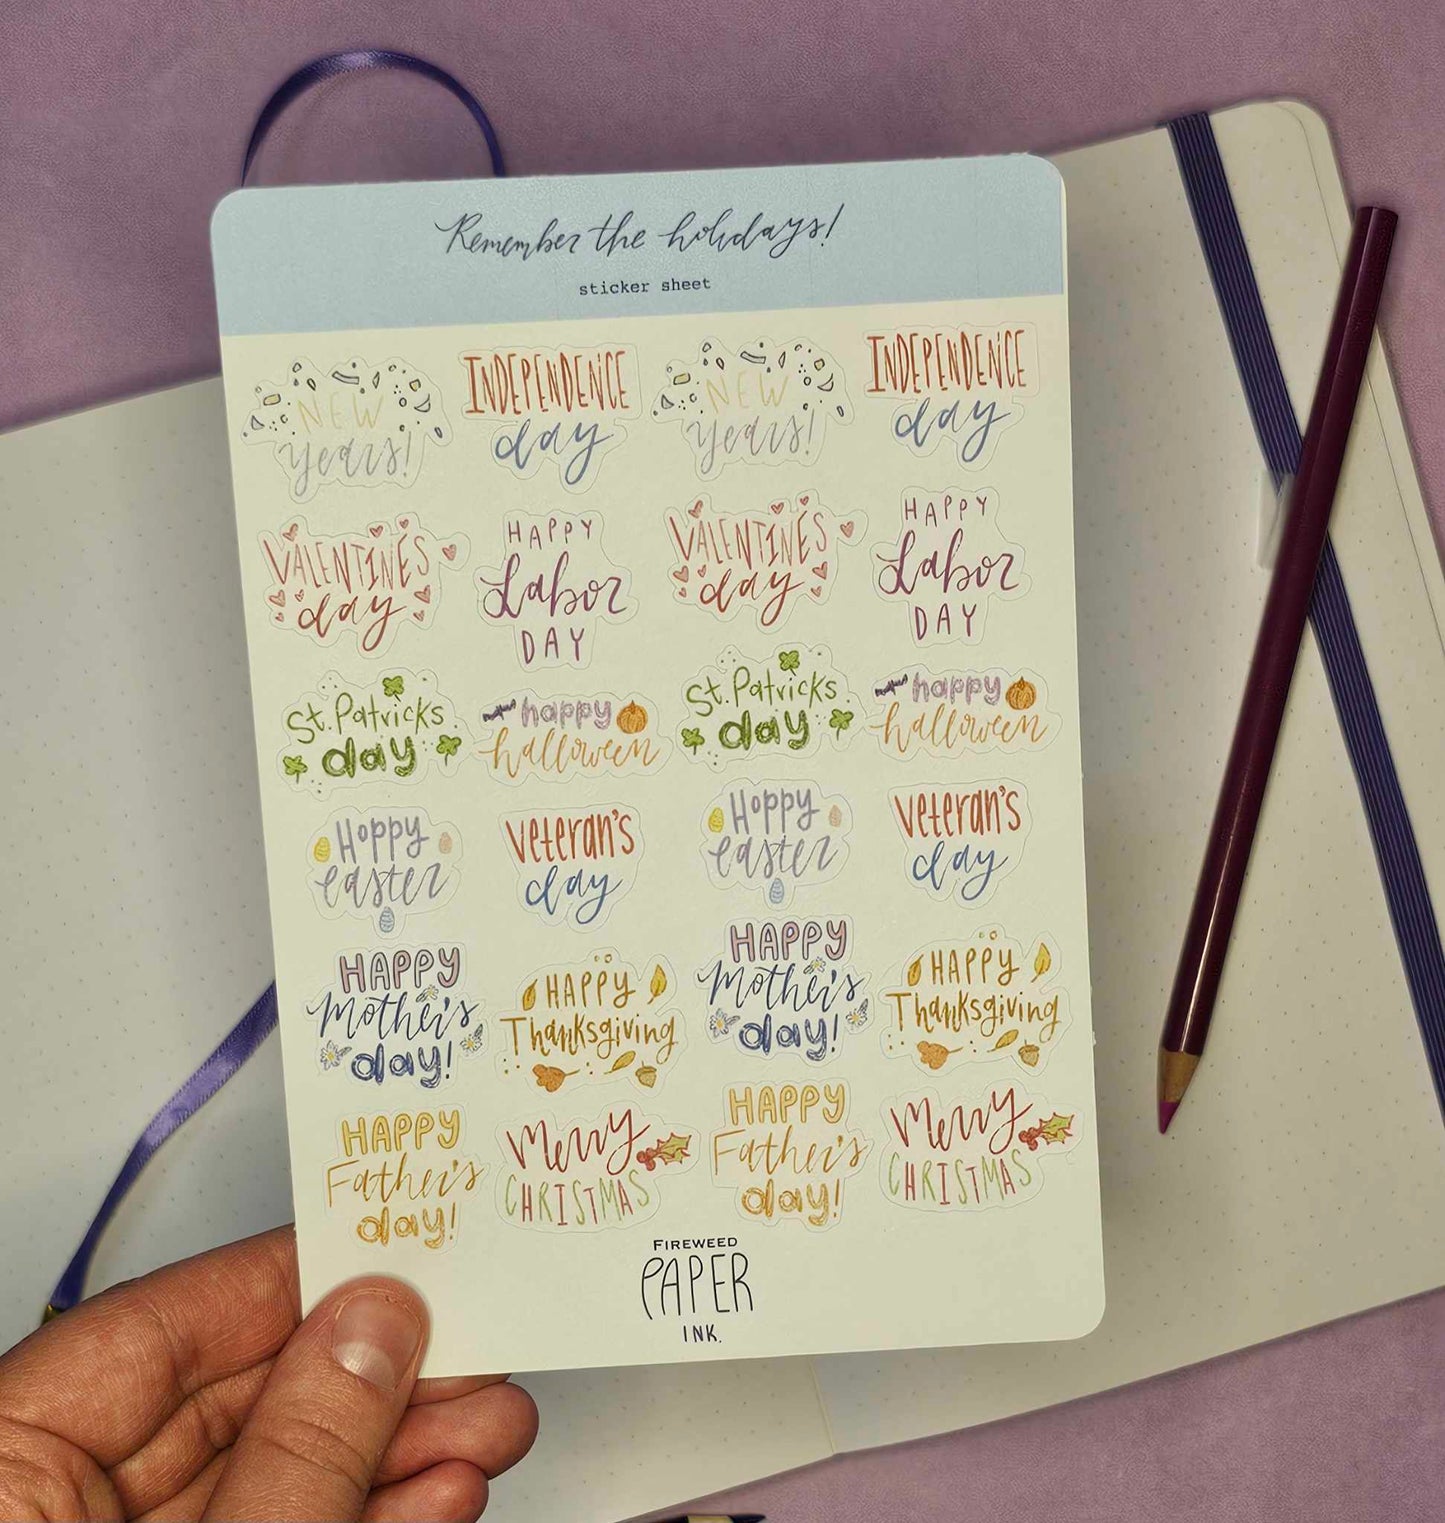 Remember the holidays!
sticker sheet
NEW
years!
INDEPENDENCE
day
NEW
years!
INDEPENDENCE
day
VALENTINES
day
HAPPY
Labor
DAY
VALENTINES
day
HAPPY
Labor
DAY
St. Patricks
day
happy
halloween
St. Patricks
day
happy
halloween
Hoppy
easter
veteran's
day
Hoppy
easter
veteran's
day
HAPPY
Mother's
day!
HAPPY
Thanksgiving
HAPPY
Mother's
day!
HAPPY
Thanksgiving
HAPPY
Father's
day!
Merry
CHRISTMAS
HAPPY
Father's
day!
Merry
CHRISTMAS
FIREWEED
PAPER
INK.